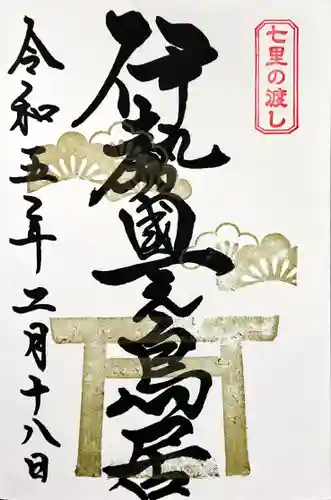 七里の渡し
伊勢國一之鳥居
令和五年二月十八日